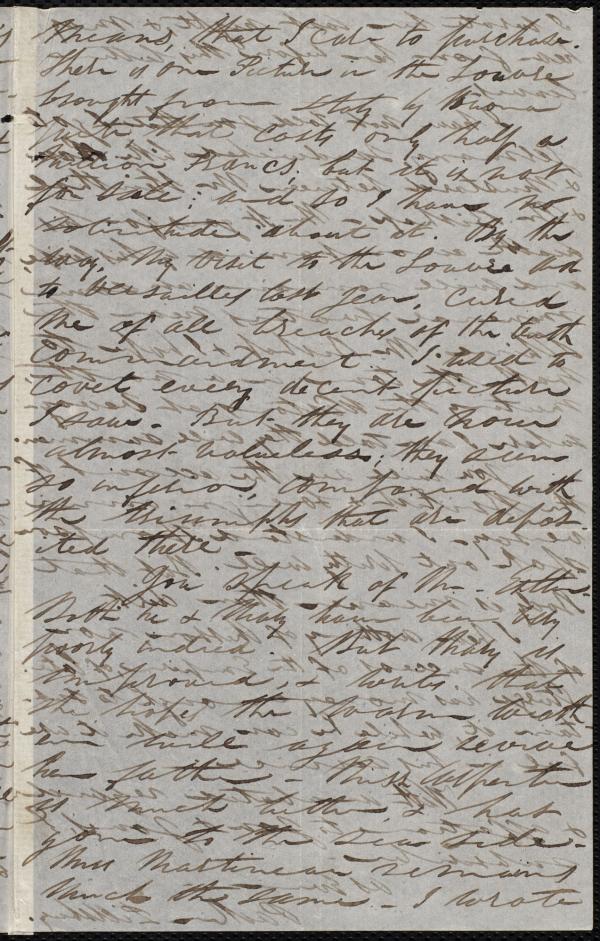 means, that I care to purchase.
There is one Picture in the Louvre
brought from Italy by Buona
parte that costs only half a
million Francs, but it is not
for sale; and so I have no
solicitude about it. By the
way, My visit to the Louvre and
to Versailles last year, cured
me of all breaches of the tenth
commandment. I used to
covet every decent picture
I saw. But they are now
almost valueless; they seem
so inferior, compared with
the triumphs that are depos-
ited there.
You speak of Mr. Estlin.
Both he & Mary have been very
poorly indeed. But Mary is
improved, & writes that
she hopes the warm weath
er will again revive
her father. Miss
is much better, & has
gone to the sea side.
Miss Martineau remains
much the same. I wrote